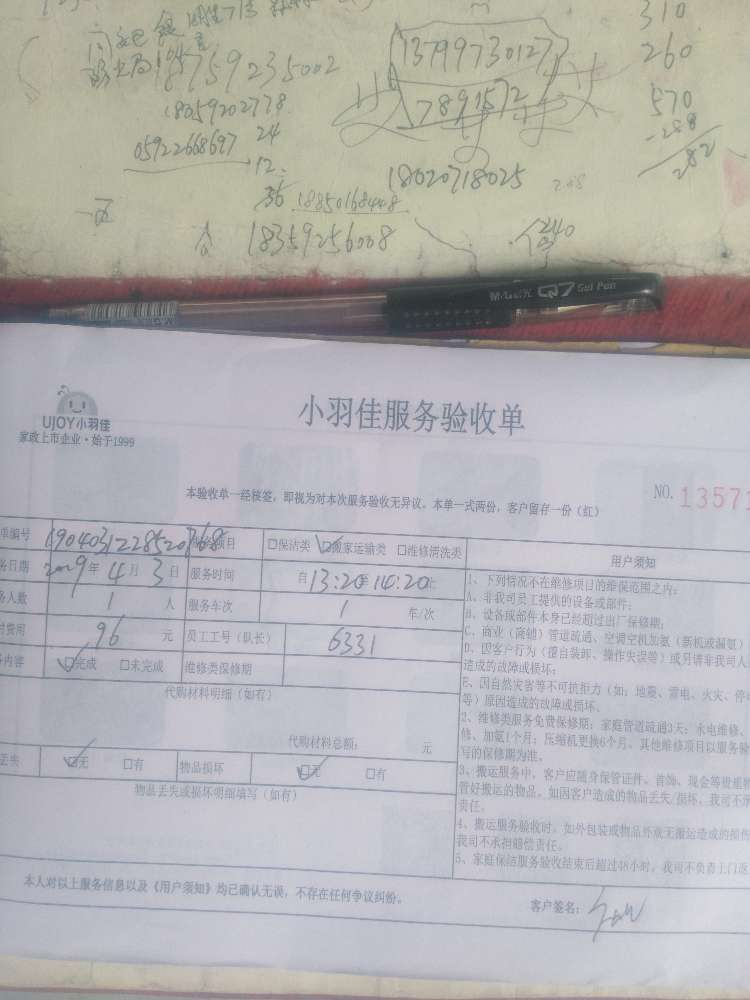 310
13799730127
260
18759235002
7891572
570
18059202778
-288
05922668697 24
282
12
18020718025
208
36 18850168408
18359256008
240
M&G晨光 Q7 Gel Pen
UJOY小羽佳
家政上市企业·始于1999
小羽佳服务验收单
本验收单一经核签，即视为对本次服务验收无异议。本单一式两份，客户留存一份（红）
NO. 13571
单编号 190403122852076 项目 □保洁类 ☑搬家运输类 □维修清洗类
务日期 2019年4月3日 服务时间 自13:20至14:20止
务人数 1 人 服务车次 1 车/次
付费用 96 元 员工工号（队长） 6331
务内容 ☑完成 □未完成 维修类保修期
代购材料明细（如有）
代购材料总额： 元
丢失 ☑无 □有 物品损坏 ☑无 □有
物品丢失或损坏明细填写（如有）
用户须知
1、下列情况不在维修项目的维保范围之内：
A、非我司员工提供的设备或部件；
B、设备或部件本身已经超过出厂保修期；
C、商业（商铺）管道疏通、空调空机加氨（新机或漏氨）
D、因客户行为（擅自装卸、操作失误等）或另请非我司人
造成的故障或损坏；
E、因自然灾害等不可抗拒力（如：地震、雷电、火灾、停
等）原因造成的故障或损坏。
2、维修类服务免费保修期：家庭管道疏通3天；水电维修、
修、加氨1个月；压缩机更换6个月。其他维修项目以服务验
写的保修期为准。
3、搬运服务中，客户应随身保管证件、首饰、现金等贵重物
管好搬运的物品。如因客户造成的物品丢失/损坏，我司不承
责任。
4、搬运服务验收时，如外包装或物品外观无搬运造成的损伤
我司不承担赔偿责任。
5、家庭保洁服务验收结束后超过48小时，我司不负责上门返
本人对以上服务信息以及《用户须知》均已确认无误，不存在任何争议纠纷。
客户签名：